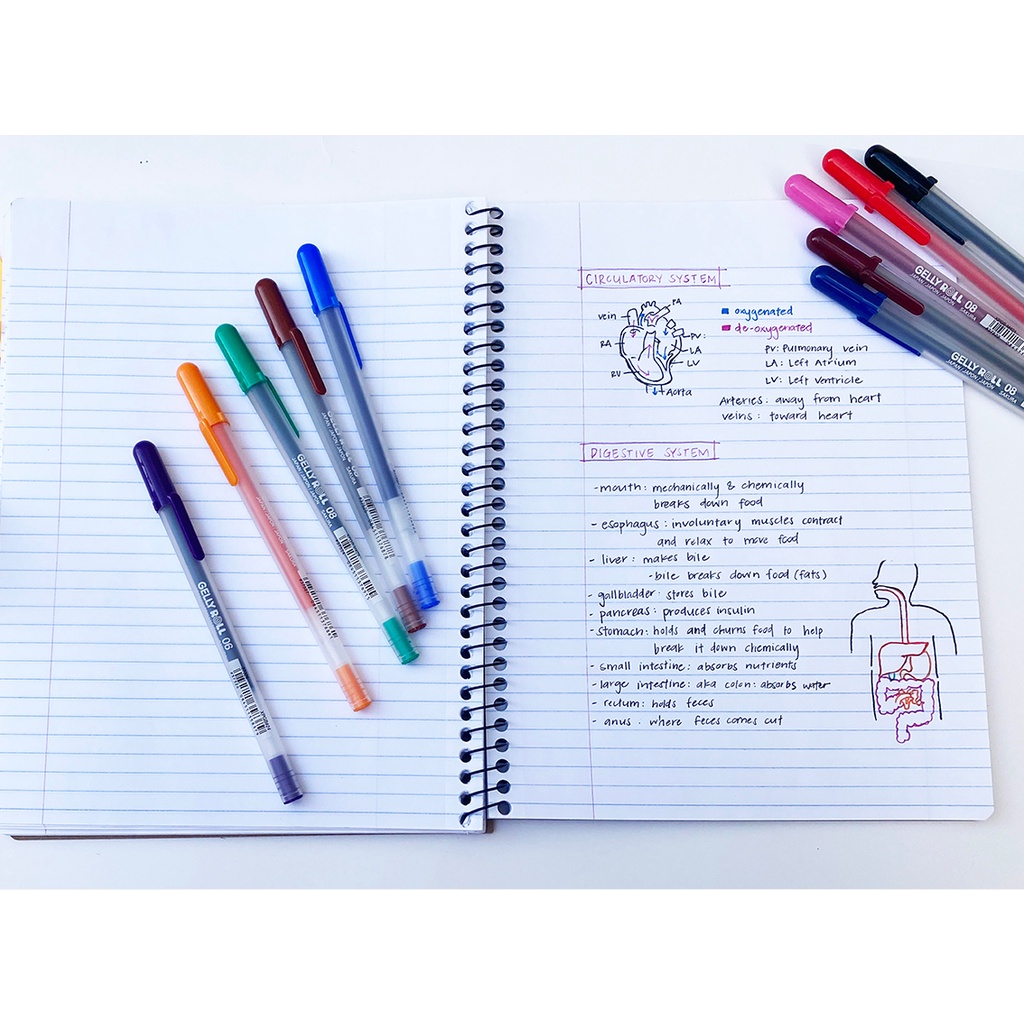 CIRCULATORY SYSTEM
vein
PA
RA
PV
LA
LV
RV
Aorta
oxygenated
de-oxygenated
PV: Pulmonary vein
LA: Left Atrium
LV: Left Ventricle
Arteries: away from heart
veins: toward heart
DIGESTIVE SYSTEM
- mouth: mechanically & chemically
breaks down food
- esophagus: involuntary muscles contract
and relax to move food
- liver: makes bile
- bile breaks down food (fats)
- gallbladder: stores bile
- pancreas: produces insulin
- stomach: holds and churns food to help
break it down chemically
- small intestine: absorbs nutrients
- large intestine: aka colon: absorbs water
- rectum: holds feces
- anus: where feces comes out
GELLY ROLL 06
GELLY ROLL 08
JAPAN/JAPON/JAPÓN SAKURA
GELLY ROLL 08
JAPAN/JAPON/JAPÓN SAKURA
GELLY ROLL 08
JAPAN/JAPON/JAPÓN SAKURA